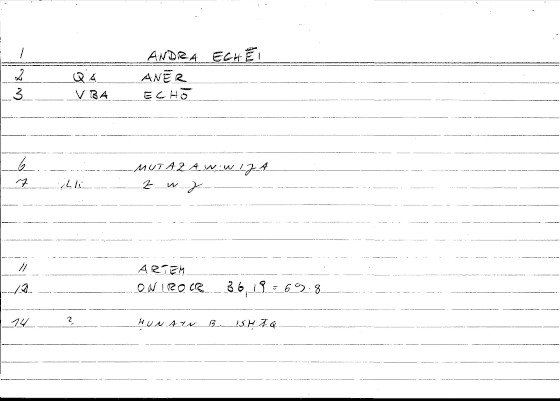 1 ANDRA ECHĒI
2 QA ANĒR
3 VBA ECHŌ
6 MUTAZAWWIJA
7 Z W J
11 ARTEM
12 ONIROCR 36,19 = 69.8
14 ? ḤUNAYN B. ISḤĀQ